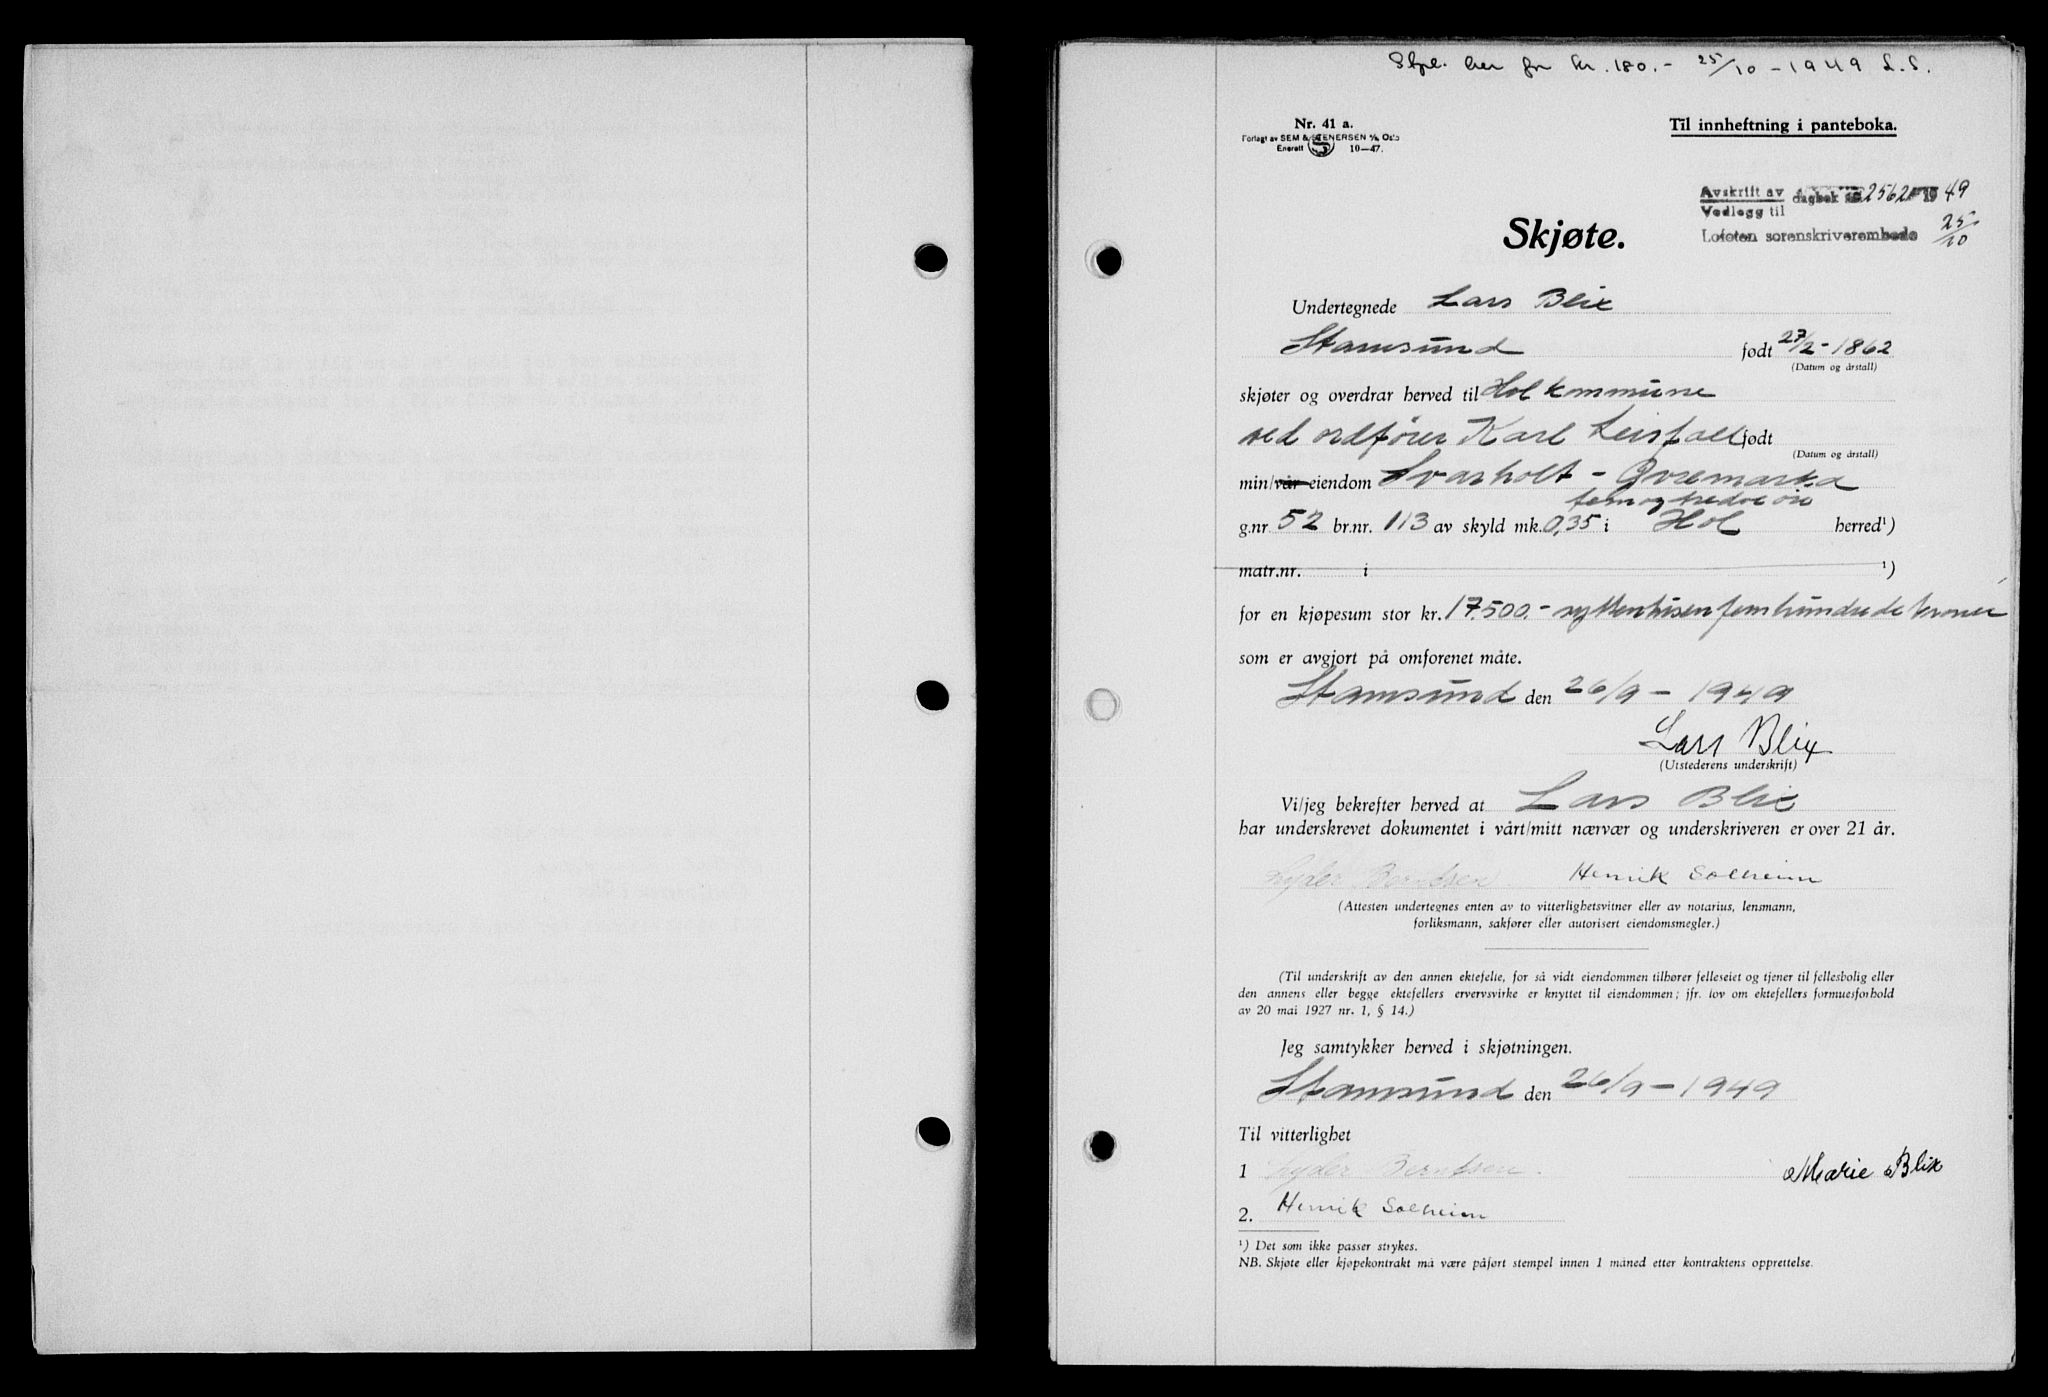 Stpl. her for kr. 180.- 25/10 - 1949 L.S.
Nr. 41 a.
Forlagt av SEM & STENERSEN A/S Oslo
Enerett 10—47.
Til innheftning i panteboka.
Avskrift av dagbok nr. 2562 1949
Vedlegg til
Lofoten sorenskriverembede 25/10
Skjøte.
Undertegnede Lars Blix
Stamsund født 27/2 - 1862
(Datum og årstall)
skjøter og overdrar herved til Hol kommune
ved ordfører Karl Leirfall født
(Datum og årstall)
min/vår eiendom Svarholt - Øvremarka
femogtredve øre
g.nr 52 br.nr. 113 av skyld mk. 0,35 i Hol herred¹)
matr.nr. i ¹)
for en kjøpesum stor kr. 17.500.- syttentusenfemhundrede kroner
som er avgjort på omforenet måte.
Stamsund den 26/9 - 1949
Lars Blix
(Utstederens underskrift)
Vi/jeg bekrefter herved at Lars Blix
har underskrevet dokumentet i vårt/mitt nærvær og underskriveren er over 21 år.
Lyder Berntsen. Henrik Solheim
(Attesten undertegnes enten av to vitterlighetsvitner eller av notarius, lensmann,
forliksmann, sakfører eller autorisert eiendomsmegler.)
(Til underskrift av den annen ektefelte, for så vidt eiendommen tilhører felleseiet og tjener til fellesbolig eller
den annens eller begge ektefellers ervervsvirke er knyttet til eiendommen; jfr. lov om ektefellers formuesforhold
av 20 mai 1927 nr. 1, § 14.)
Jeg samtykker herved i skjøtningen.
Stamsund den 26/9 - 1949
Til vitterlighet
1 Lyder Berntsen. Marie Blix
2. Henrik Solheim
¹) Det som ikke passer strykes.
NB. Skjøte eller kjøpekontrakt må være påført stempel innen 1 måned etter kontraktens opprettelse.